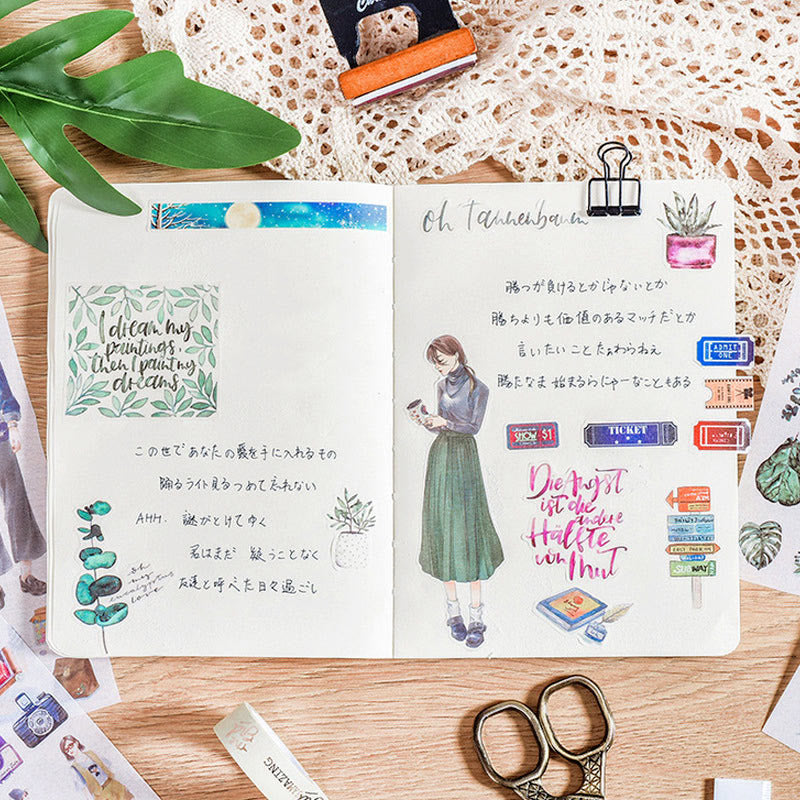 oh Tannenbaum
I dream my
paintings,
then I paint my
dreams
この世であなたの愛を手に入れるもの
踊るライト見るつめて忘れない
AHH. 謎がとけてゆく
君はまだ 疑うことなく
友達と呼べた日々過ごし
oh
my
eucalyptus
love
勝つが負けるとかじゃないとか
勝ちよりも価値のあるマッチだとか
言いたいことたぁわらねぇ
勝たなま始まるらにゃーなこともある
ADMIT
ONE
SHOW $1
TICKET
Die Angst
ist die
andere
Hälfte
von Mut
EAST PARK RD
SUBWAY
AMAZING